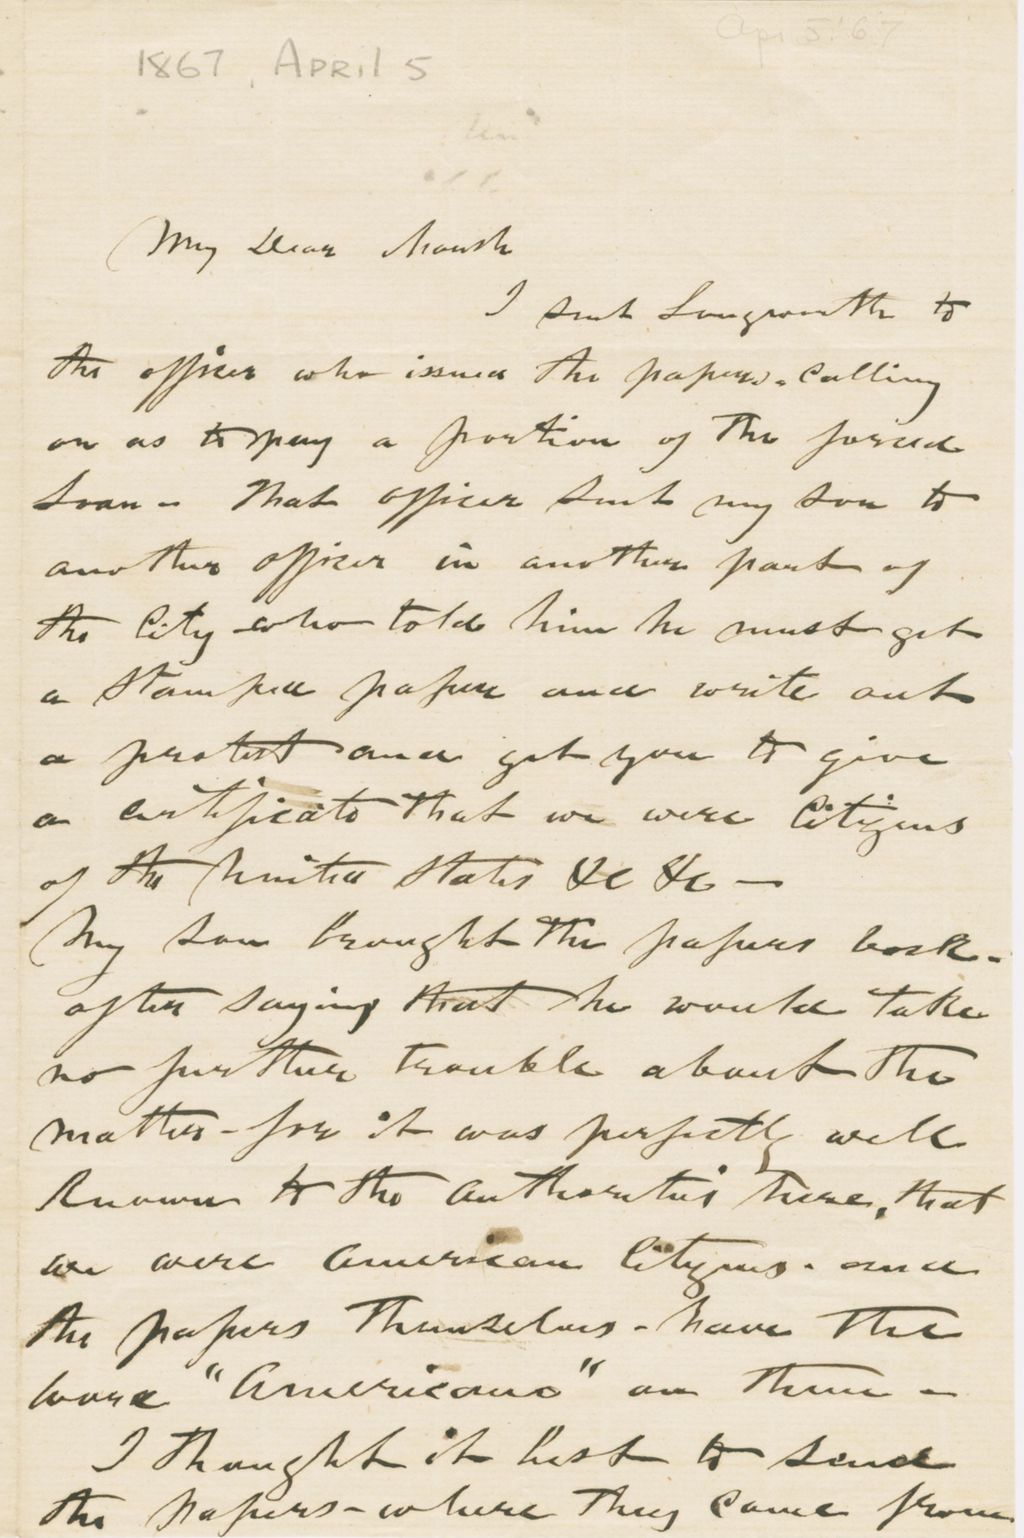 Apr 5. '67
1867, April 5
My Dear Marsh
I sent Longworth to
the officer who issued the papers. Calling
on us to pay a portion of the forced
Loan - That officer sent my son to
another officer in another part of
the City who told him he must get
a Stamped paper and write out
a protest and get you to give
a certificate that we were Citizens
of the United States &c &c -
My son brought the papers back -
after saying that he would take
no further trouble about the
matter - for it was perfectly well
Known to the authorities here, that
we were American Citizens. and
the papers themselves - have the
word "Americano" on them -
I thought it best to send
the papers - where they came from